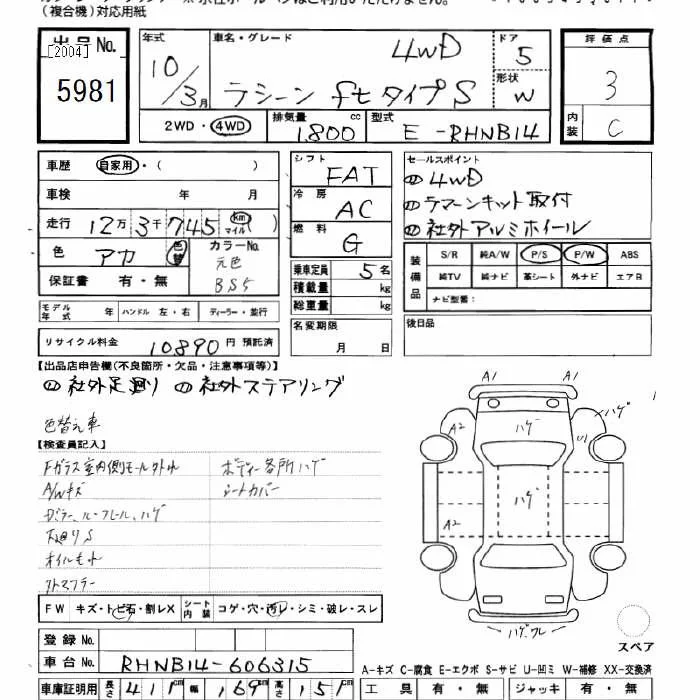 (複合機)対応用紙
出品No.
[2004]
5981
年式
10/3月
車名・グレード
4WD
ラシーン ftタイプS
ドア
5
形状
W
評価点
3
内装
C
2WD・4WD
排気量
1,800 cc
型式
E-RHNB14
車歴 自家用・( )
車検 年 月
走行 12万3千745 km マイル( )
色 アカ 色替
カラーNo.
元色
BS5
保証書 有・無
モデル年式 年 ハンドル 左・右 ディーラー・並行
リサイクル料金 10890 円 預託済
シフト
FAT
冷房
AC
燃料
G
乗車定員 5 名
積載量 kg
総重量 kg
名変期限
月 日
セールスポイント
4WD
ラマーンキット取付
社外アルミホイール
装備品
S/R 純A/W P/S P/W ABS
純TV 純ナビ 革シート 外ナビ エアB
ナビ型番:
後日品
【出品店申告欄(不良箇所・欠品・注意事項等)】
社外足廻り 社外ステアリング
色替え車
【検査員記入】
Fガラス室内側モール外れ
A/Wキズ
下廻りS
オイルモレ
ボディー各所ハゲ
シートカバー
A1 A1
ハゲ
A2
ハゲ
ハゲ
A2
スペア
FW キズ・トビ石・割レX シート内装 コゲ・穴・汚レ・シミ・破レ・スレ
登録No.
車台No. RHNB14-606315
車庫証明用 長さ 411cm 幅 169cm 高さ 151cm
A-キズ C-腐食 E-エクボ S-サビ U-凹ミ W-補修 XX-交換済
工具 有・無 ジャッキ 有・無